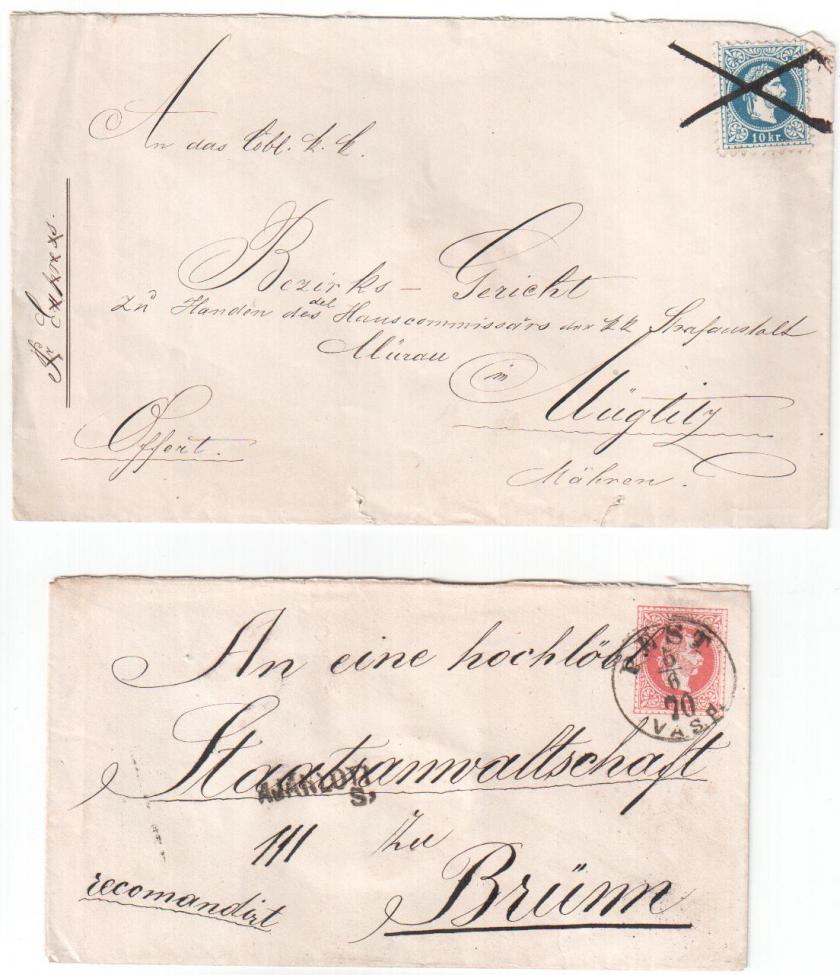 An das löbl. k. k.
Bezirks - Gericht
zu Handen des del Hauscommissärs der kk Strafanstalt
Mürau
in
Müglitz
Mähren.
Offert.
pr Express.
10 kr.
An eine hochlöbl
Staatsanwaltschaft
zu
Brünn
recomandirt
AJÁNLOTT
S.
PEST
6
70
V.A.S.P.